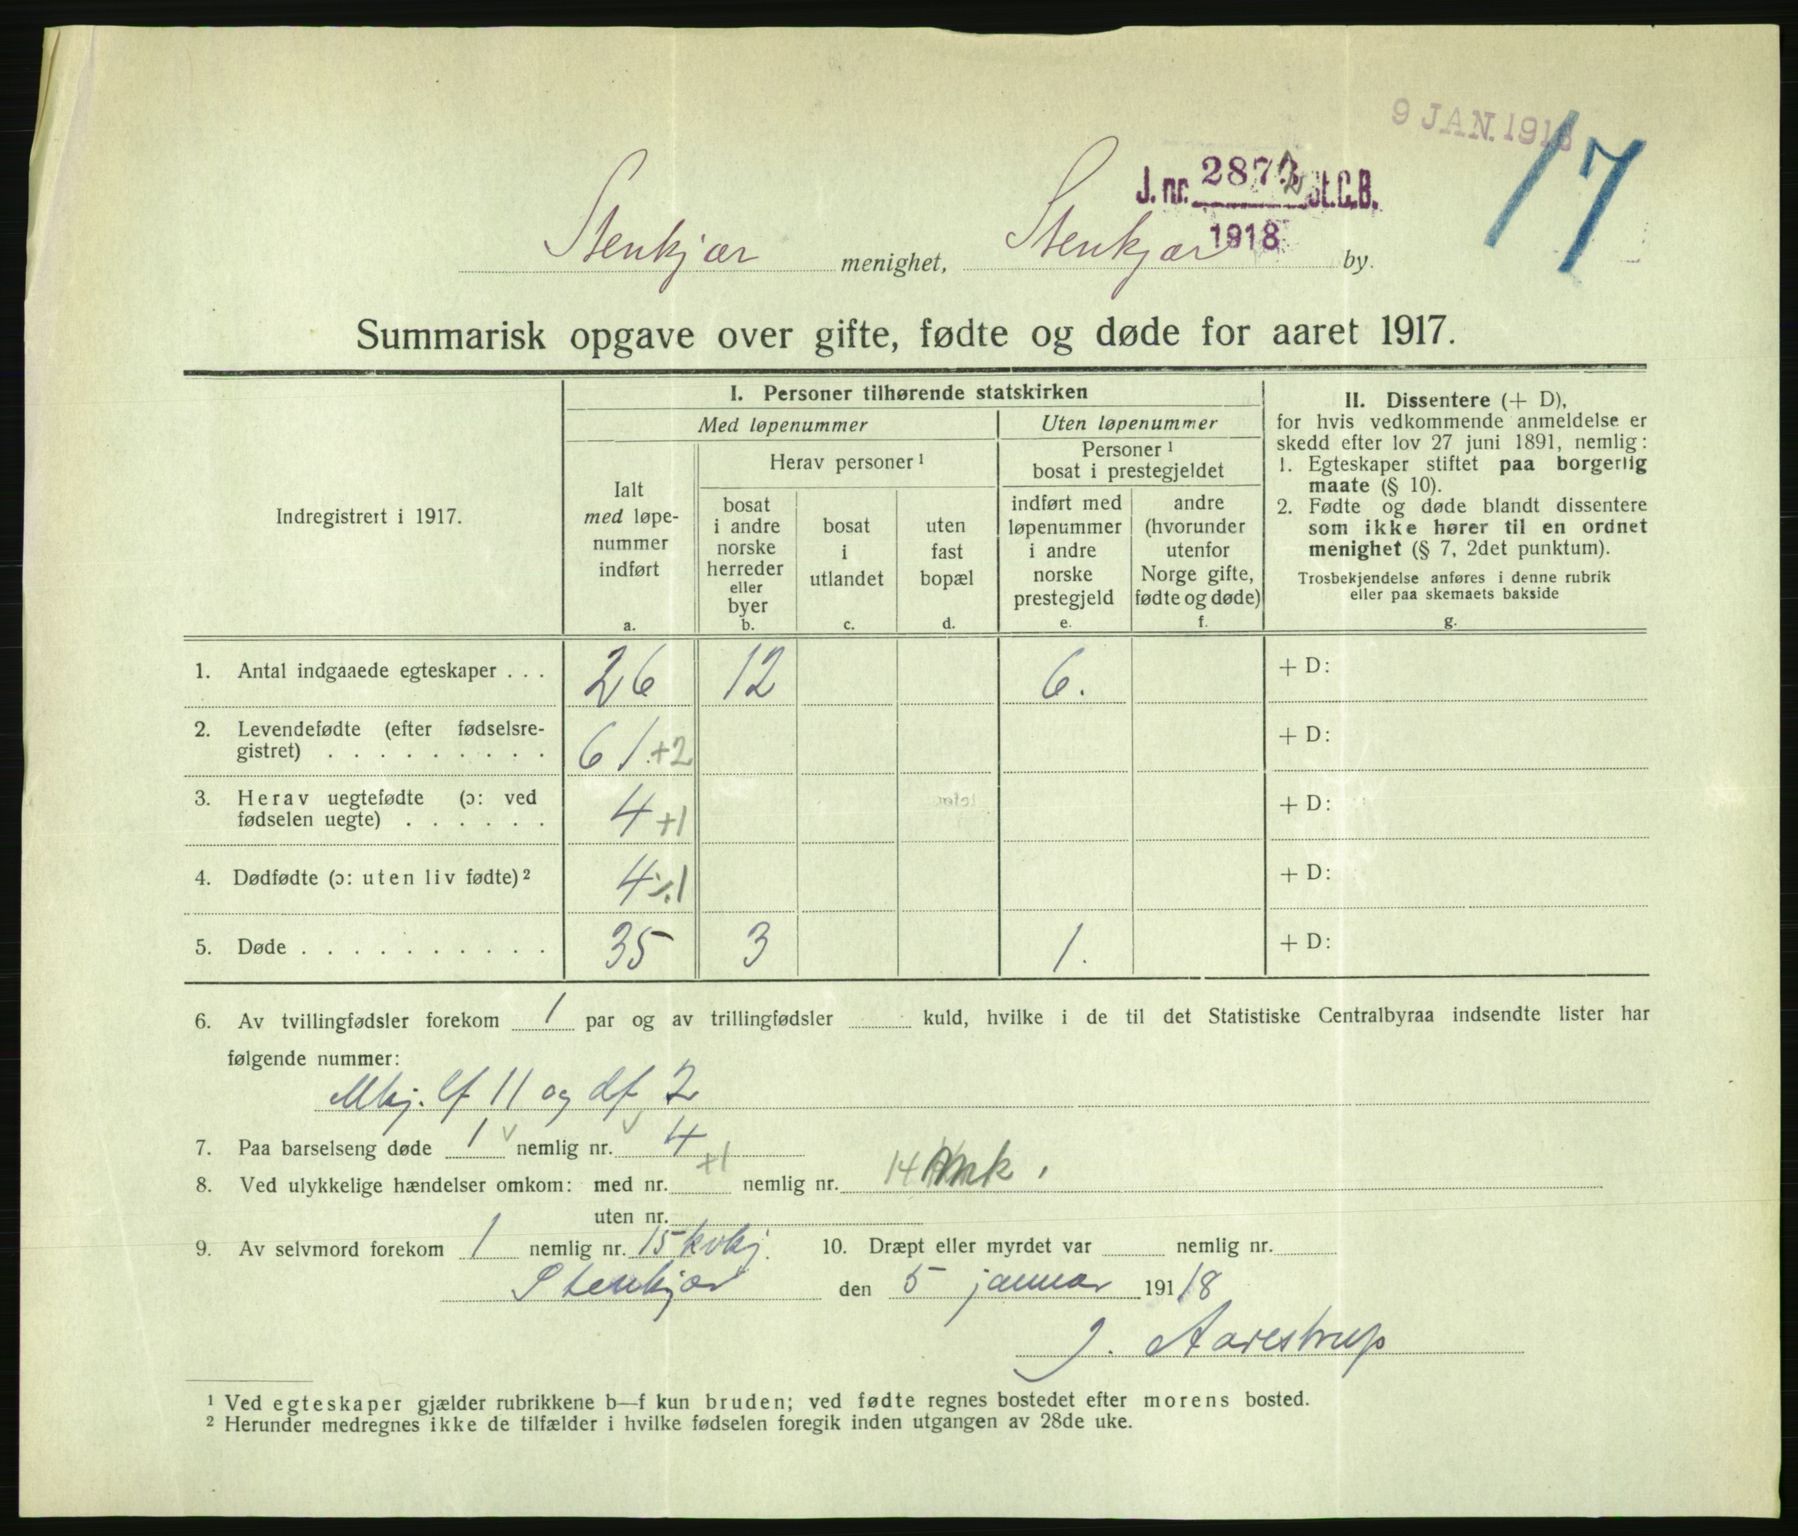 9 JAN. 1918
17
J. nr. 2872 St.C.B.
1918
Stenkjær menighet, Stenkjær by.
Summarisk opgave over gifte, fødte og døde for aaret 1917.
Indregistrert i 1917.
I. Personer tilhørende statskirken
Med løpenummer
Uten løpenummer
Ialt
med løpe-
nummer
indført
a.
Herav personer ¹
bosat
i andre
norske
herreder
eller
byer
b.
bosat
i
utlandet
c.
uten
fast
bopæl
d.
Personer ¹
bosat i prestegjeldet
indført med
løpenummer
i andre
norske
prestegjeld
e.
andre
(hvorunder
utenfor
Norge gifte,
fødte og døde)
f.
II. Dissentere (+ D),
for hvis vedkommende anmeldelse er
skedd efter lov 27 juni 1891, nemlig:
1. Egteskaper stiftet paa borgerlig
maate (§ 10).
2. Fødte og døde blandt dissentere
som ikke hører til en ordnet
menighet (§ 7, 2det punktum).
Trosbekjendelse anføres i denne rubrik
eller paa skemaets bakside
g.
1. Antal indgaaede egteskaper . . . 26 12 6. + D:
2. Levendefødte (efter fødselsre-
gistret) . . . . . . . . . 61 +2 + D:
3. Herav uegtefødte (ɔ: ved
fødselen uegte) . . . . . . 4 +1 + D:
4. Dødfødte (ɔ: uten liv fødte) ² 4 ⁒1 + D:
5. Døde . . . . . . . . . . 35 3 1. + D:
6. Av tvillingfødsler forekom 1 par og av trillingfødsler kuld, hvilke i de til det Statistiske Centralbyraa indsendte lister har
følgende nummer:
Mkj. lf 11 og df 2
7. Paa barselseng døde 1 nemlig nr. 4
8. Ved ulykkelige hændelser omkom: med nr. +1 nemlig nr. 14 mk
uten nr.
9. Av selvmord forekom 1 nemlig nr. 15 kvkj. 10. Dræpt eller myrdet var nemlig nr.
Stenkjær den 5 januar 1918
J. Aarestrup
¹ Ved egteskaper gjælder rubrikkene b—f kun bruden; ved fødte regnes bostedet efter morens bosted.
² Herunder medregnes ikke de tilfælder i hvilke fødselen foregik inden utgangen av 28de uke.